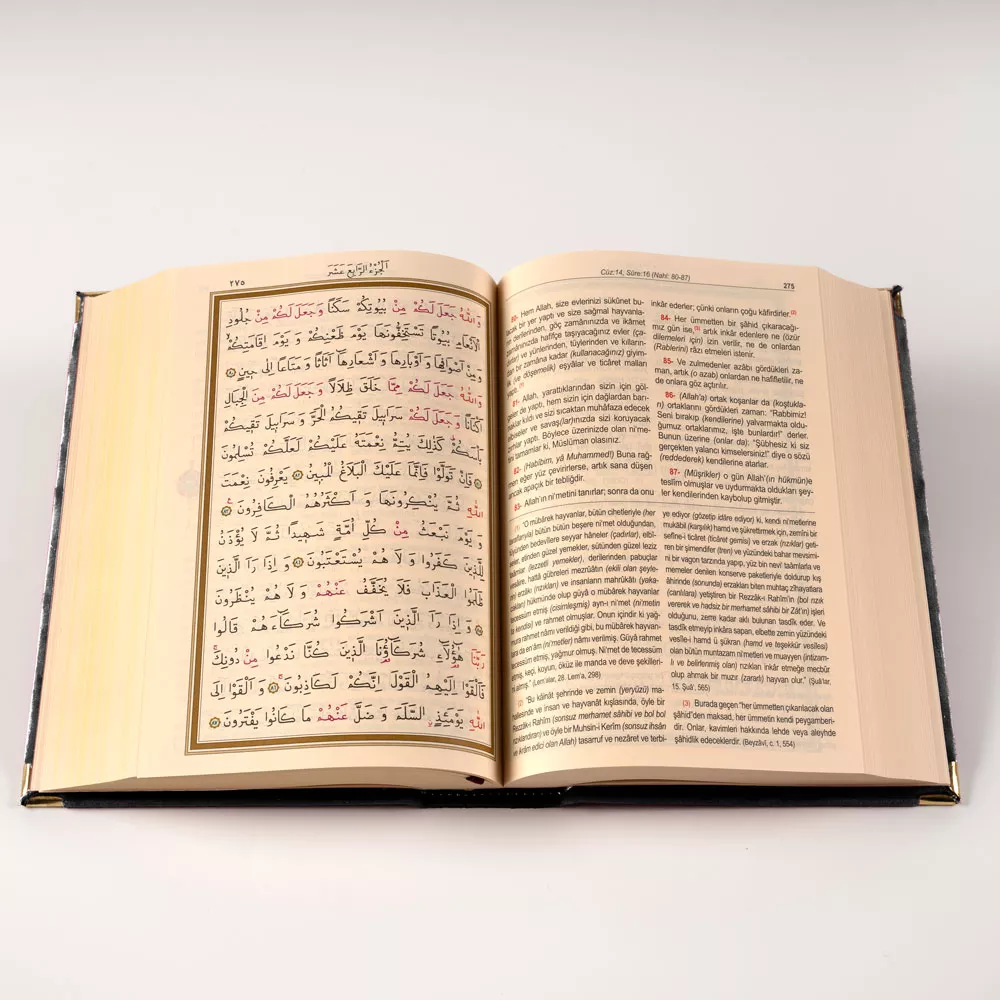 اَلْجُزْءُ الرَّابِعَ عَشَرَ
٢٧٥
وَاللّٰهُ جَعَلَ لَكُمْ مِنْ بُيُوتِكُمْ سَكَنًا وَجَعَلَ لَكُمْ مِنْ جُلُودِ
الْاَنْعَامِ بُيُوتًا تَسْتَخِفُّونَهَا يَوْمَ ظَعْنِكُمْ وَ يَوْمَ اِقَامَتِكُمْ
وَمِنْ اَصْوَافِهَا وَاَوْبَارِهَا وَ اَشْعَارِهَا اَثَاثًا وَ مَتَاعًا اِلٰى حِينٍ ٨٠
وَاللّٰهُ جَعَلَ لَكُمْ مِمَّا خَلَقَ ظِلَالًا وَجَعَلَ لَكُمْ مِنَ الْجِبَالِ
اَكْنَانًا وَ جَعَلَ لَكُمْ سَرَابِيلَ تَقِيكُمُ الْحَرَّ وَ سَرَابِيلَ تَقِيكُمْ
بَأْسَكُمْ كَذٰلِكَ يُتِمُّ نِعْمَتَهُ عَلَيْكُمْ لَعَلَّكُمْ تُسْلِمُونَ
٨١ فَاِنْ تَوَلَّوْا فَاِنَّمَا عَلَيْكَ الْبَلَاغُ الْمُبِينُ ٨٢ يَعْرِفُونَ نِعْمَتَ
اللّٰهِ ثُمَّ يُنْكِرُونَهَا وَ اَكْثَرُهُمُ الْكَافِرُونَ ٨٣
وَ يَوْمَ نَبْعَثُ مِنْ كُلِّ اُمَّةٍ شَهِيدًا ثُمَّ لَا يُؤْذَنُ
لِلَّذِينَ كَفَرُوا وَ لَا هُمْ يُسْتَعْتَبُونَ ٨٤ وَ اِذَا رَاَ الَّذِينَ
ظَلَمُوا الْعَذَابَ فَلَا يُخَفَّفُ عَنْهُمْ وَ لَا هُمْ يُنْظَرُونَ
٨٥ وَ اِذَا رَاَ الَّذِينَ اَشْرَكُوا شُرَكَٓاءَهُمْ قَالُوا
رَبَّنَا هٰٓؤُلَٓاءِ شُرَكَٓاؤُنَا الَّذِينَ كُنَّا نَدْعُوا مِنْ دُونِكَ
فَاَلْقَوْا اِلَيْهِمُ الْقَوْلَ اِنَّكُمْ لَكَاذِبُونَ ٨٦ وَ اَلْقَوْا اِلَى
اللّٰهِ يَوْمَئِذٍ السَّلَمَ وَ ضَلَّ عَنْهُمْ مَا كَانُوا يَفْتَرُونَ ٨٧
Cüz:14, Sûre:16 (Nahl: 80-87)
275
80- Hem Allah, size evlerinizi sükûnet bu-
lacak bir yer yaptı ve size sağmal hayvanla-
derilerinden, göç zamanınızda ve ikâmet
zamânınızda hafifçe taşıyacağınız evler (ça-
ve yünlerinden, tüylerinden ve kılların-
dan bir zamana kadar (kullanacağınız) giyim-
(ve döşemelik) eşyalar ve ticâret malları
yaptı.
81- Allah, yarattıklarından sizin için göl-
geler yaptı, hem sizin için dağlardan barı-
naklar kıldı ve sizi sıcaktan muhâfaza edecek
elbiseler ve savaş(lar)ınızda sizi koruyacak
yaptı. Böylece üzerinizde olan ni'me-
tamamlar ki, Müslüman olasınız.
82- (Habîbim, yâ Muhammed!) Buna rağ-
men eğer yüz çevirirlerse, artık sana düşen
ancak apaçık bir tebliğdir.
83- Allah'ın ni'metini tanırlar; sonra da onu
inkâr ederler; çünki onların çoğu kâfirdirler.(2)
84- Her ümmetten bir şâhid çıkaracağı-
mız gün ise,(3) artık inkâr edenlere ne (özür
dilemeleri için) izin verilir, ne de onlardan
(Rablerini) râzı etmeleri istenir.
85- Ve zulmedenler azâbı gördükleri za-
man, artık (o azab) onlardan ne hafifletilir, ne
de onlara göz açtırılır.
86- (Allah'a) ortak koşanlar da (koştukla-
rı) ortaklarını gördükleri zaman: "Rabbimiz!
Seni bırakıp (kendilerine) yalvarmakta oldu-
ğumuz ortaklarımız, işte bunlardır!" derler.
Bunun üzerine (onlar da): "Şübhesiz ki siz
gerçekten yalancı kimselersiniz!" diye o sözü
(reddederek) kendilerine atarlar.
87- (Müşrikler) o gün Allah'(ın hükmün)e
teslîm olmuşlar ve uydurmakta oldukları şey-
ler kendilerinden kaybolup gitmiştir.
(1) "O mübârek hayvanlar, bütün cihetleriyle (her
taraflarıyla) bütün bütün beşere ni'met olduğundan,
tüyünden bedevîlere seyyar hâneler (çadırlar), elbi-
seler, etinden güzel yemekler, sütünden güzel leziz
taâmlar (lezzetli yemekler), derilerinden pabuçlar
vesâire, hattâ gübreleri mezrûâtın (ekili olan şeyle-
rin) erzâkı (rızıkları) ve insanların mahrûkâtı (yaka-
cakları) hükmünde olup gûyâ o mübârek hayvanlar
tecessüm etmiş (cisimleşmiş) ayn-ı ni'met (ni'metin
kendisi) ve rahmet olmuşlar. Onun içindir ki yağ-
mura rahmet nâmı verildiği gibi, bu mübârek hayvan-
lara da en'âm (ni'metler) nâmı verilmiş. Gûyâ rahmet
tecessüm etmiş, yağmur olmuş. Ni'met de tecessüm
etmiş, keçi, koyun, öküz ile manda ve deve şekilleri-
ni almış." (Lem'alar, 28. Lem'a, 298)
(2) "Bu kâinât şehrinde ve zemin (yeryüzü) ma-
hallesinde ve insan ve hayvanât kışlasında, öyle bir
Rezzâk-ı Rahîm (sonsuz merhamet sâhibi ve bol bol
rızıklandıran) ve öyle bir Muhsin-i Kerîm (sonsuz ihsân
ve ikrâm edici olan Allah) tasarruf ve nezâret ve terbi-
ye ediyor (gözetip idâre ediyor) ki, kendi ni'metlerine
mukābil (karşılık) hamd ve şükrettirmek için, zemîni bir
sefîne-i ticâret (ticâret gemisi) ve erzak (rızıklar) geti-
ren bir şimendifer (tren) ve yüzündeki bahar mevsimi-
ni bir vagon tarzında yapıp, yüz bin nevi taâmlarla ve
memeler denilen konserve paketleriyle doldurup kış
âhirinde (sonunda) erzakları biten muhtaç zîhayatlara
(canlılara) yetiştiren bir Rezzâk-ı Rahîm'in (bol rızık
vererek ve hadsiz bir merhamet sâhibi bir Zât'ın) işleri
olduğunu, zerre kadar aklı bulunan tasdîk eder. Ve
tasdîk etmeyip inkâra sapan, elbette zemin yüzündeki
vesîle-i hamd ü şükran (hamd ve teşekkür vesîlesi)
olan bütün muntazam ni'metleri ve muayyen (intizam-
lı ve belirlenmiş olan) rızıkları inkâr etmeğe mecbûr
olup ahmak bir muzır (zararlı) hayvan olur." (Şuâ'lar,
15. Şuâ', 565)
(3) Burada geçen "her ümmetten çıkarılacak olan
şâhid"den maksad, her ümmetin kendi peygamberi-
dir. Onlar, kavimleri hakkında lehde veya aleyhde
şâhidlik edeceklerdir. (Beyzâvî, c. 1, 554)